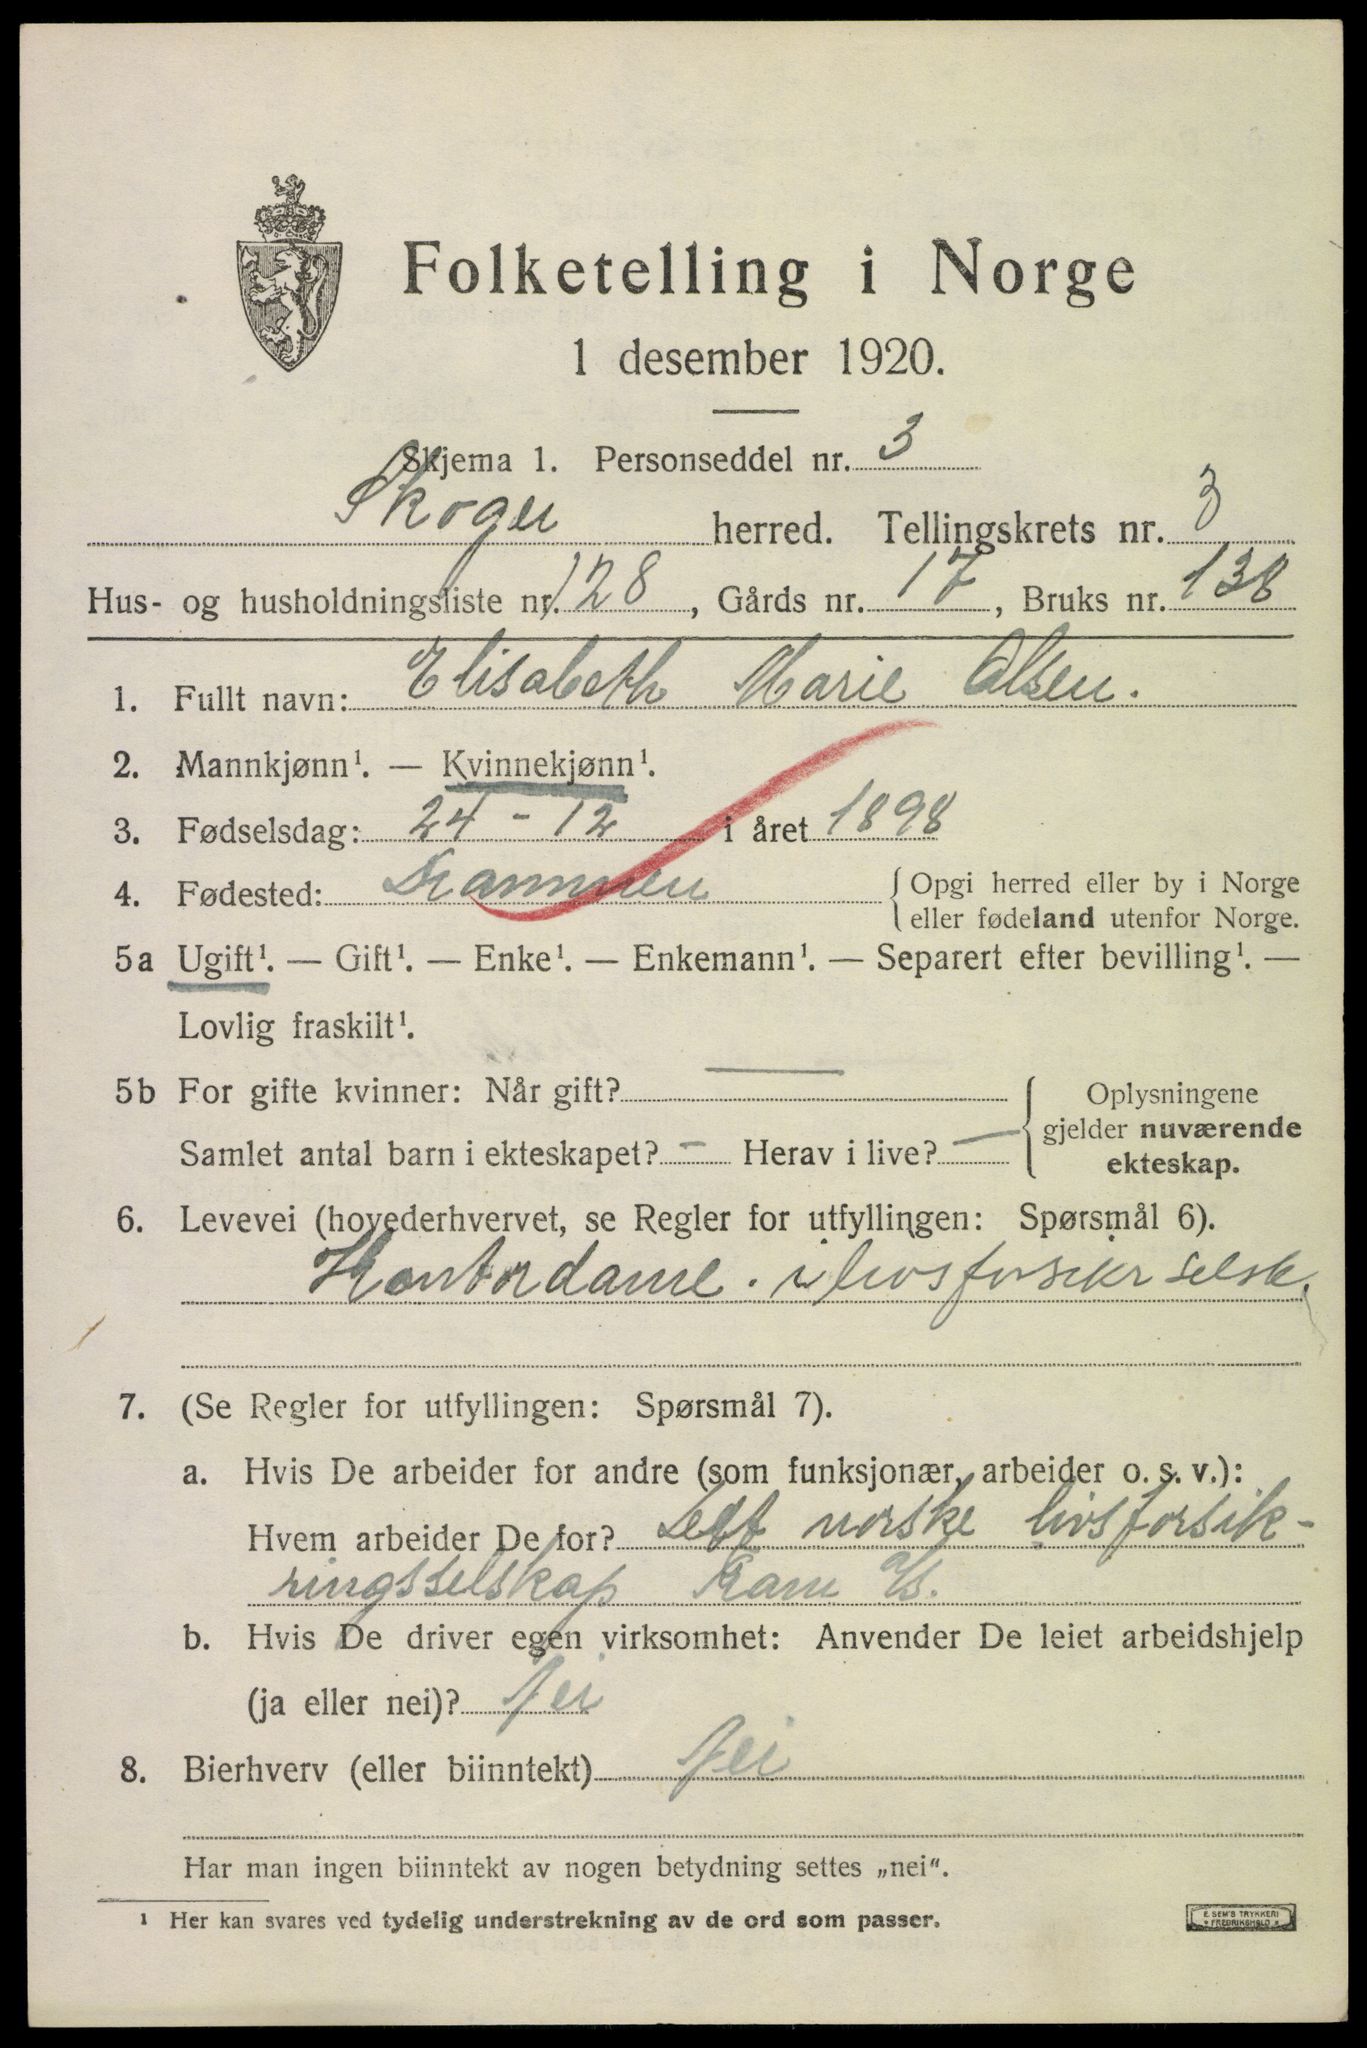 Folketelling i Norge
1 desember 1920.
Skjema 1. Personseddel nr. 3
Skoger herred. Tellingskrets nr. 3
Hus- og husholdningsliste nr. 128, Gårds nr. 17, Bruks nr. 138
1. Fullt navn: Elisabeth Marie Olsen.
2. Mannkjønn¹. — Kvinnekjønn¹.
3. Fødselsdag: 24 - 12 i året 1898
4. Fødested: Drammen { Opgi herred eller by i Norge
eller fødeland utenfor Norge.
5a Ugift¹. — Gift¹. — Enke¹. — Enkemann¹. — Separert efter bevilling¹. —
Lovlig fraskilt¹.
5b For gifte kvinner: Når gift? — Oplysningene
gjelder nuværende
Samlet antal barn i ekteskapet? — Herav i live? —
ekteskap.
6. Levevei (hovederhvervet, se Regler for utfyllingen: Spørsmål 6).
Kontordame. i livsforsikr selsk.
7. (Se Regler for utfyllingen: Spørsmål 7).
a. Hvis De arbeider for andre (som funksjonær, arbeider o. s. v.):
Hvem arbeider De for? Det norske livsforsik-
ringsselskap Fram A/S.
b. Hvis De driver egen virksomhet: Anvender De leiet arbeidshjelp
(ja eller nei)? Nei
8. Bierhverv (eller biinntekt) Nei
Har man ingen biinntekt av nogen betydning settes „nei“.
¹ Her kan svares ved tydelig understrekning av de ord som passer.
E. SEM'S TRYKKERI
FREDRIKSHALD